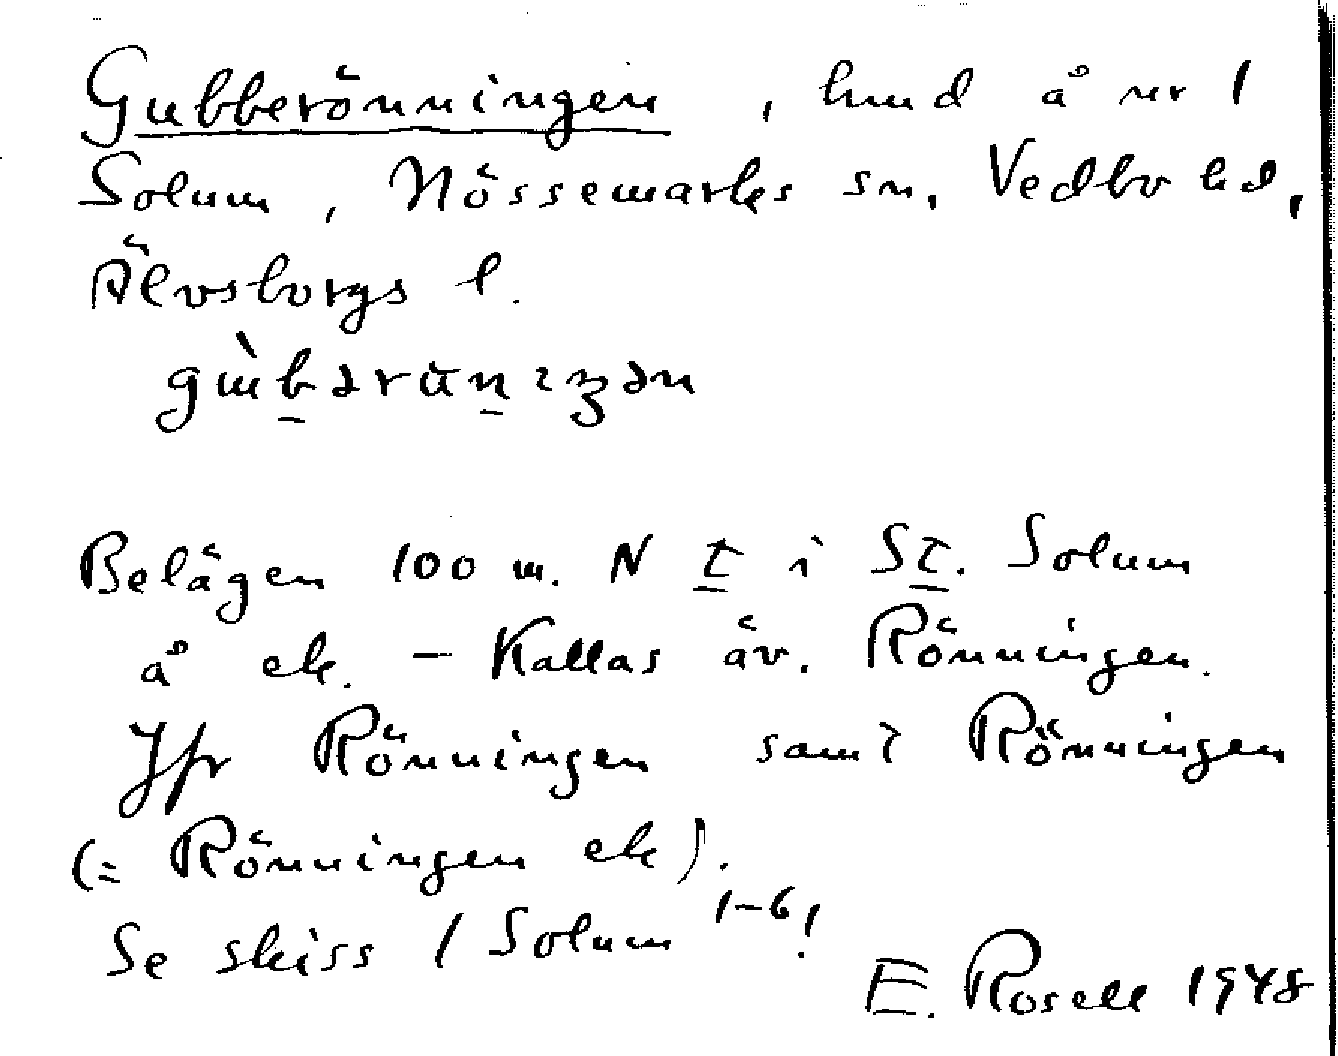 Gubberönningen, lund å nr 1
Solum, Nössemarks sn, Vedbo hd,
Älvsborgs l.
Belägen 100 m. N I i St. Solum
å ek. – Kallas äv. Rönningen.
Jfr Rönningen samt Rönningen
(= Rönningen ek).
Se skiss 1 Solum 1–6!
E. Rosell 1948